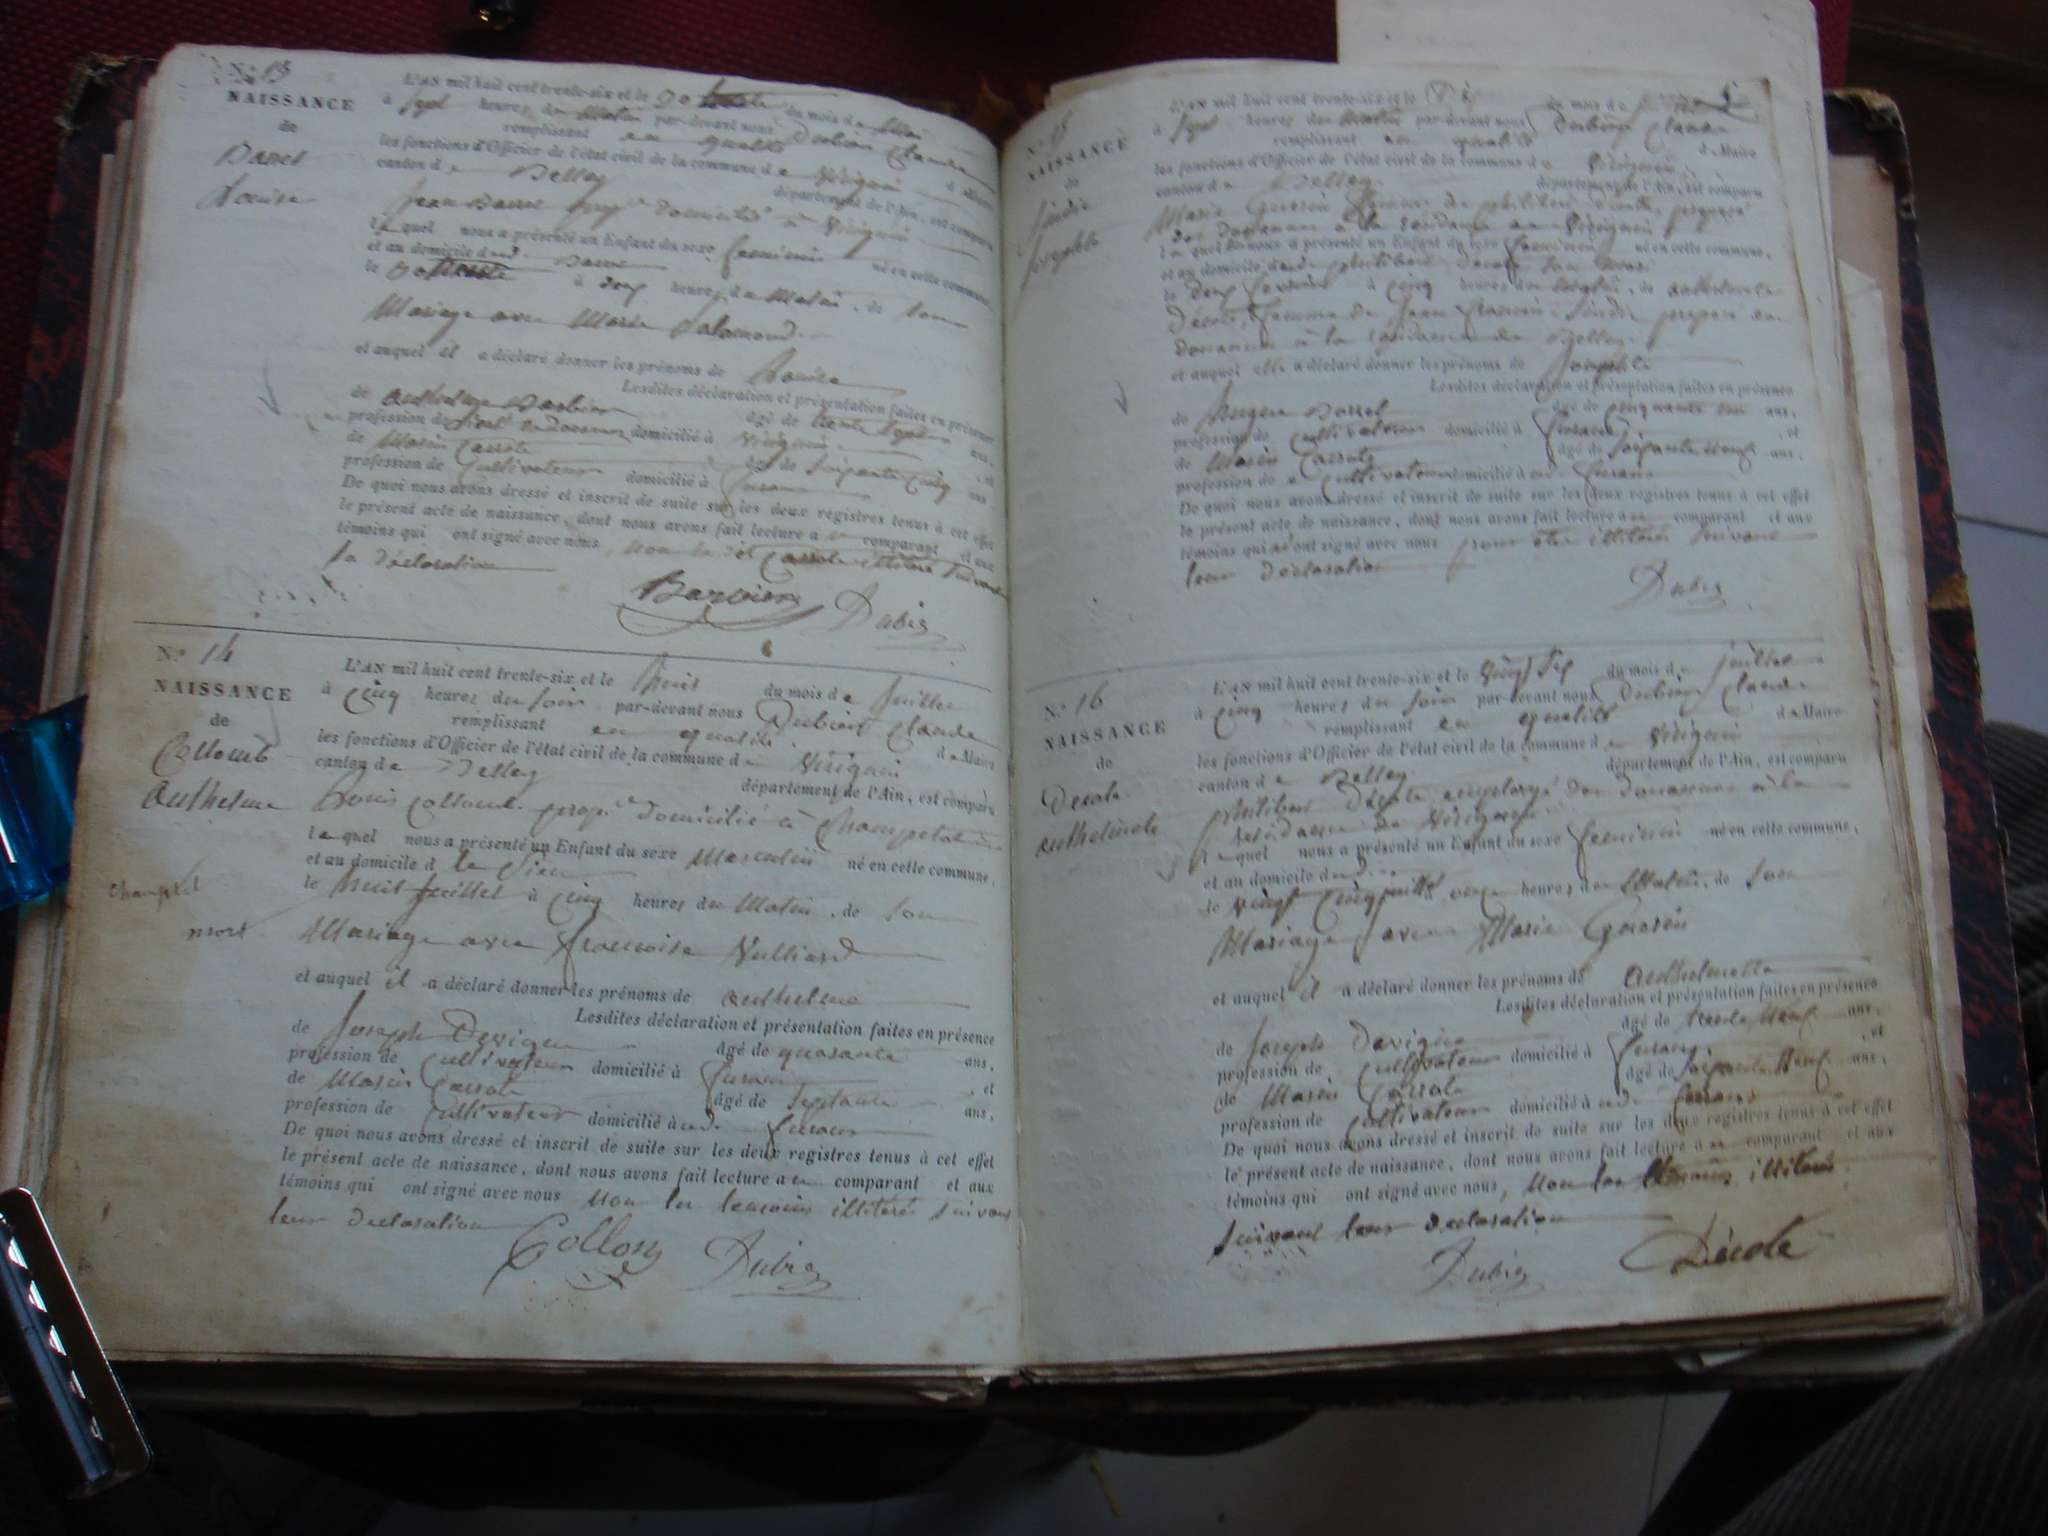 N.º 13
NAISSANCE
de
Barret
Louise
L'AN mil huit cent trente-six et le du mois de Mai
à Sept heures du Matin par-devant nous Dubien Claude
remplissant en qualité d Maire
les fonctions d'Officier de l'état civil de la commune de Virignin
canton de Belley département de l'Ain, est comparu
Jean domicilié à Virignin
lequel nous a présenté un Enfant du sexe feminin né en cette commune,
et au domicile dud.
le à heures du Matin, de son
Mariage avec Marie Salomond
et auquel il a déclaré donner les prénoms de Louise
Lesdites déclaration et présentation faites en présence
de Anthelme Barbier âgé de trente Sept ans,
profession de domicilié à Virignin, et
de Marin Cassote âgé de Soixante Cinq ans
profession de Cultivateur domicilié à
De quoi nous avons dressé et inscrit de suite sur les deux registres tenus à cet effet
le présent acte de naissance, dont nous avons fait lecture au comparant et aux
témoins qui ont signé avec nous, non led. Cassote illiteré suivant
sa déclaration
Barbier Dubien
N.º 14
NAISSANCE
de
Collomb
Anthelme
Champtel
mort
L'AN mil huit cent trente-six et le huit du mois de Juillet
à Cinq heures du soir par-devant nous Dubien Claude
remplissant en qualité de Maire
les fonctions d'Officier de l'état civil de la commune de Virignin
canton de Belley département de l'Ain, est comparu
Louis Collomb domicilié à
lequel nous a présenté un Enfant du sexe Masculin né en cette commune,
et au domicile d le Sien
le huit Juillet à Cinq heures du Matin, de son
Mariage avec Francoise Vulliard
et auquel il a déclaré donner les prénoms de Anthelme
Lesdites déclaration et présentation faites en présence
de Joseph Devigne âgé de quarante ans,
profession de Cultivateur domicilié à, et
de Marin Cassote âgé de Septante ans,
profession de Cultivateur domicilié à ud.
De quoi nous avons dressé et inscrit de suite sur les deux registres tenus à cet effet
le présent acte de naissance, dont nous avons fait lecture au comparant et aux
témoins qui ont signé avec nous non les temoins illiterés suivant
leur declaration
Collomb Dubien
N.º 15
NAISSANCE
de
Josephte
L'AN mil huit cent trente-six et le du mois de
à Sept heures du Matin par-devant nous Dubien Claude
remplissant en qualité d Maire
les fonctions d'Officier de l'état civil de la commune de Virignin
canton de Belley département de l'Ain, est comparu
Marie Guerin femme de philibert Decote, preposé
des Douannes à la residence de Virignin
laquelle nous a présenté un Enfant du sexe feminin né en cette commune,
et au domicile dud. philibert Decote
le à Cinq heures du Matin, de Anthelmete
Decote, femme de Jean preposé des
Douannes à la residence de Belley
et auquel elle a déclaré donner les prénoms de Josephte
Lesdites déclaration et présentation faites en présence
de âgé de Cinquante ans,
profession de Cultivateur domicilié à, et
de Marin Cassote âgé de Soixante Neuf ans,
profession de Cultivateur domicilié à ud.
De quoi nous avons dressé et inscrit de suite sur les deux registres tenus à cet effet
le présent acte de naissance, dont nous avons fait lecture au comparant et aux
témoins qui n'ont signé avec nous pour être illiterés suivant
leur declaration
Dubien
N.º 16
NAISSANCE
de
Decote
Anthelmete
L'AN mil huit cent trente-six et le vingt Six du mois de Juillet
à Cinq heures du soir par-devant nous Dubien Claude
remplissant en qualité d Maire
les fonctions d'Officier de l'état civil de la commune de Virignin
canton de Belley département de l'Ain, est comparu
philibert Decote employé des Douannes à la
residence de Virignin
lequel nous a présenté un Enfant du sexe feminin né en cette commune,
et au domicile dud.
le vingt Cinq juillet à heures du Matin, de son
Mariage avec Marie Guerin
et auquel il a déclaré donner les prénoms de Anthelmette
Lesdites déclaration et présentation faites en présence
de Joseph Devigne âgé de trente Neuf ans,
profession de Cultivateur domicilié à, et
de Marin Cassote âgé de Soixante Neuf ans,
profession de Cultivateur domicilié à ud.
De quoi nous avons dressé et inscrit de suite sur les deux registres tenus à cet effet
le présent acte de naissance, dont nous avons fait lecture au comparant et aux
témoins qui ont signé avec nous, non les temoins illiterés
suivant leur declaration
Dubien Decote